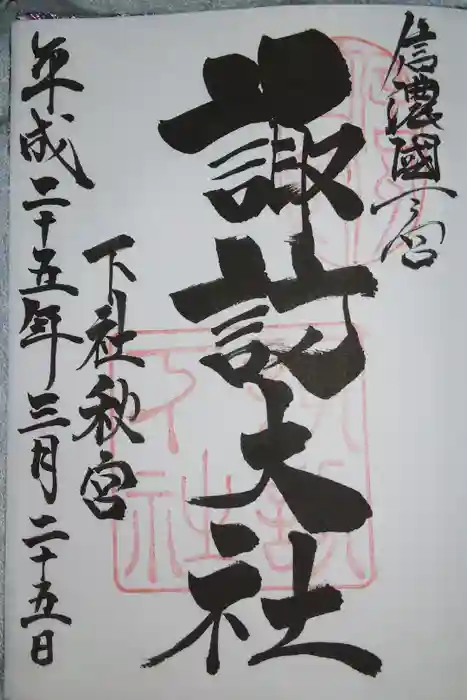 信濃國一宮
諏訪大社
下社秋宮
平成二十五年三月二十五日